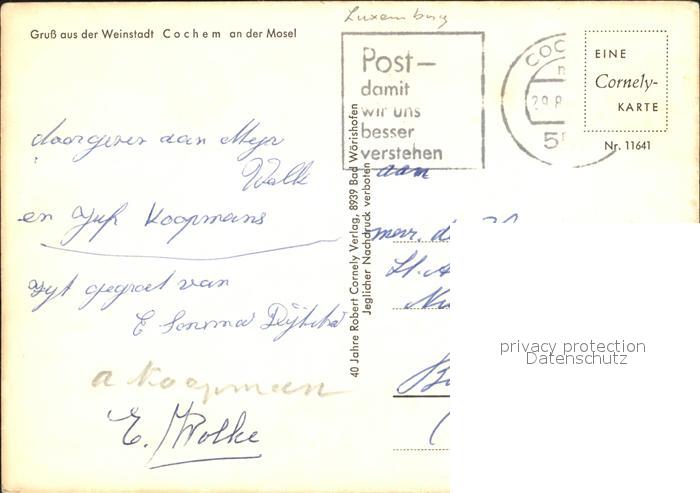 Luxemburg
Gruß aus der Weinstadt Cochem an der Mosel
Post –
damit
wir uns
besser
verstehen
COC
29.8
5
EINE
Cornely-
KARTE
Nr. 11641
doorgeven aan Mejr
Wolk
en Jufr Koopmans
zyt gegroet van
E
a Koopman
E. Wolke
40 Jahre Robert Cornely Verlag, 8939 Bad Wörishofen
Jeglicher Nachdruck verboten
aan
mevr. d
St. A
privacy protection
Datenschutz